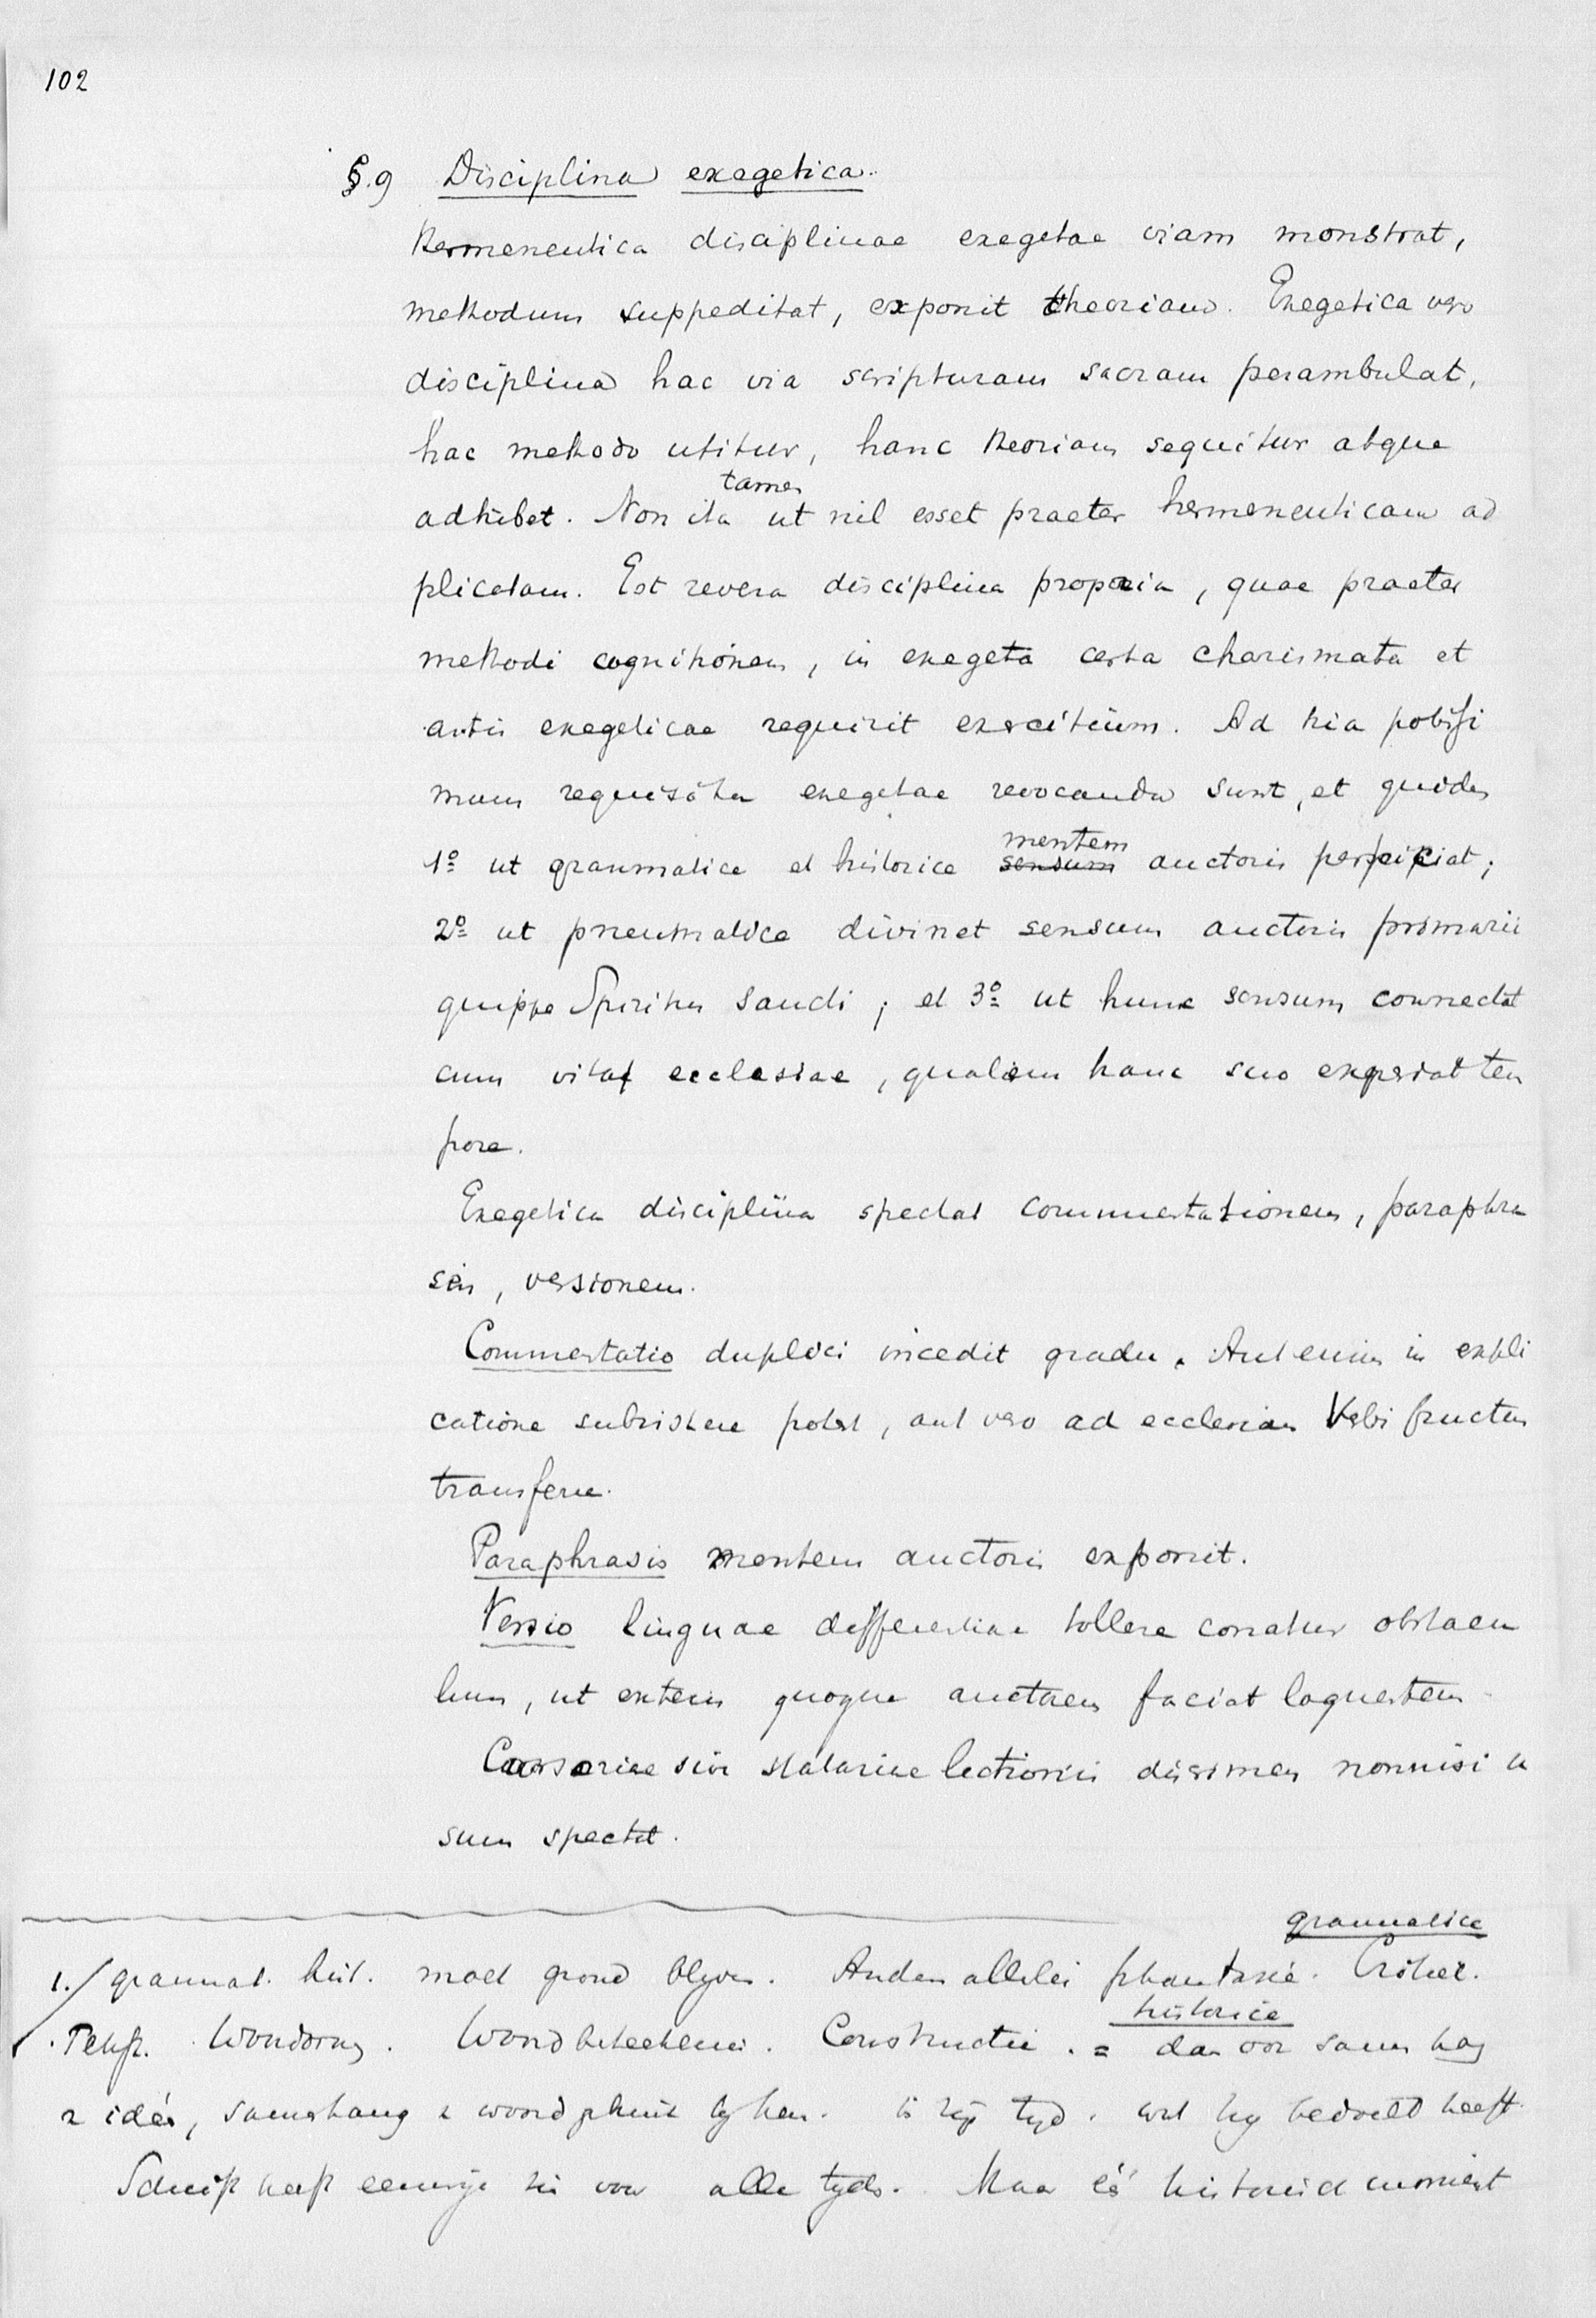 102
§.9 Disciplina exegetica.
Hermeneutica disciplinae exegetae viam monstrat,
methodum suppeditat, exponit theoriam. Exegetica vero
disciplina hac via scripturam sacram perambulat,
hac methodo utitur, hanc theoriam sequitur atque
tamen
adhibet. Non ita ut nil esset praeter hermeneuticam ad
plicatam. Est revera disciplina propria, quae praeter
methodi cognitionem, in exegeta certa charismata et
artis exegeticae requirit exercitium. Ad tria potissi
mum requisita exegetae revocanda sunt, et quidem
mentem
1º ut grammatice et historice sensum auctoris perspiciat;
2º ut pneumatice divinet sensum auctoris primarii
quippe Spiritus Sancti; et 3º ut hunc sensum connectat
cum vita ecclesiae, qualem hanc suo experiat tem
pore.
Exegetica disciplina spectat commentationem, paraphra
sin, versionem.
Commentatio duplici incedit gradu. Aut enim in expli
catione subsistere potest, aut vero ad ecclesiam Verbi fructum
transferre.
Paraphrasis mentem auctoris exponit.
Versio linguae differentiae tollere conatur obstacu
lum, ut exteris quoque auctorem faciat loquentem.
Cursoriae sive statariae lectionis discrimen nonnisi u
sum spectat.
grammatice
1./ grammat. hist. moet grond blyven. Anders allerlei phantasie.
historice
Tekst. Woordvorm. Woordbeteekenis. Constructie. = dan voor samenhang
idée, samenhang
in zijn tijd. wat hij bedoeld heeft.
Schrift heeft eeuwige zin voor alle tyds. Maar historisch moment